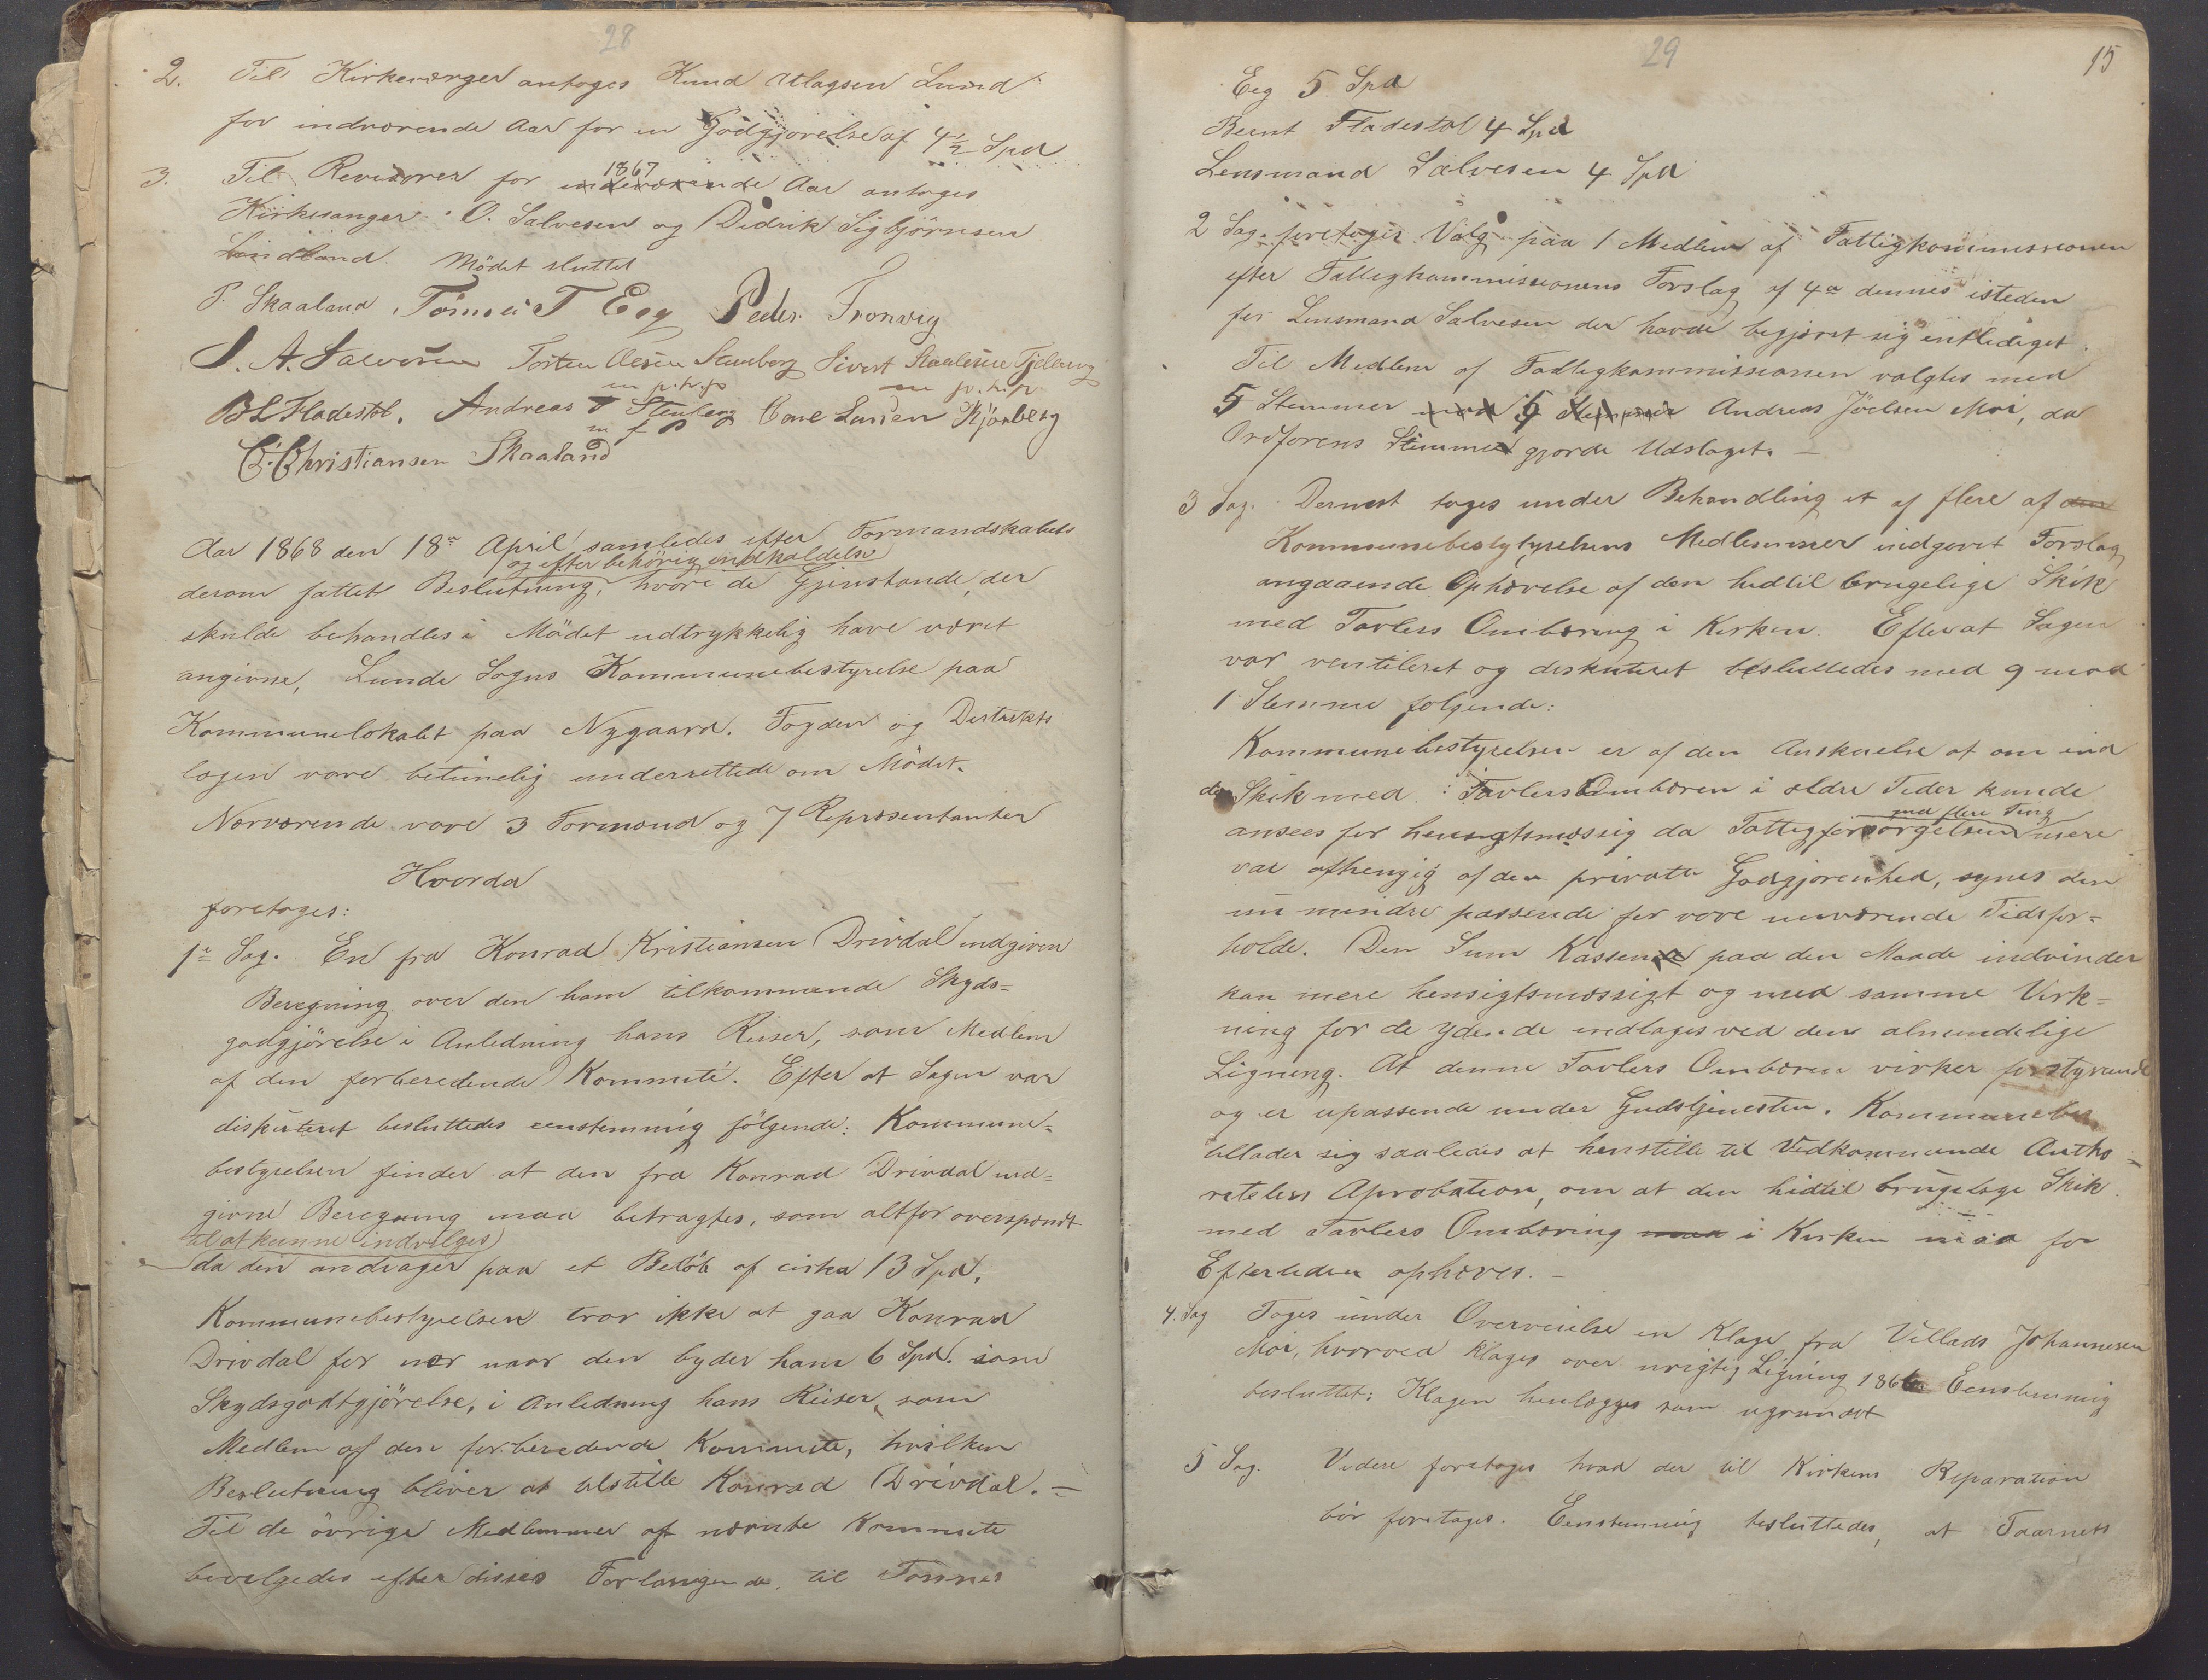 28
2. Til Kirkeværger antoges Knud Atlagsen Lund
for indværende Aar for en Godgjørelse af 4½ Spd
3. Til Revisorer for indeværende 1867 Aar antoges
Kirkesanger O. Salvesen og Didrik Sigbjörnsen
Lindland. Mödet sluttet
P. Skaaland Tönnes T Eeg Peder Tronvig
S. A. Salvesen Torten Olesen Stenberg Sivert Staalesen Fjelavig
m p. h. p m p. h. p
B L Fladestöl. Andreas T Stenberg Carl Larsen Kjönberg
m f P
C. Christiansen Skaaland
Aar 1868 den 18de April samledes efter Formandskabets
og efter behörig indkaldelse
derom fattet Beslutning, hvori de Gjenstande, der
skulde behandles i Mödet udtrykkelig have været
angivne, Lunde Sogns Kommunebestyrelse paa
Kommunelokalet paa Nygaard. Fogden og Distrikts
lægen vare betimelig underrettede om Mödet.
Nærværende vare 3 Formænd og 7 Repræsentanter
Hvorda
foretoges:
1ste Sag. En fra Konrad Kristiansen Drivdal indgiven
Beregning over den ham tilkommende Skyds=
godgjörelse i Anledning hans Reiser, som Medlem
af den forberedende Kommite. Efter at Sagen var
disputeret besluttedes eenstemmig fölgende: Kommune=
bestyrelsen finder at den fra Konrad Drivdal ind=
givne Beregning maa betragtes, som altfor overspændt
til at kunne indvilges
da den andrager paa et Belöb af cirka 13 Spd.
Kommunebestyrelsen tror ikke at gaa Konrad
Drivdal for nær naar den byder ham 6 Spd. som
Skydsgodtgjörelse, i Anledning hans Reiser, som
Medlem af den forberedende Kommite, hvilken
Beslutning bliver at tilstille Konrad Drivdal. —
Til de övrige Medlemmer af nævnte Kommite
bevilgedes efter disses Forlangende, til Tönnes
29
15
Eeg 5 Spd
Bernt Fladestøl 4 Spd
Lensmand Salvesen 4 Spd
2 Sag. foretoges Valg paa 1 Medlem af Fattigkommissionen
efter Fattigkommissionens Forslag af 4de dennes isteden
for Lensmand Salvesen der havde begjæret sig entlediget.
Til Medlem af Fattigkommissionen valgtes med
5 Stemmer mod 5 Stemmer Andreas Jöelsen Moi, da
Ordförens Stemme gjorde Udslaget. —
3 Sag. Dernæst toges under Behandling et af flere af den
Kommunebestytyrelsens Medlemmer indgivet Forslag
angaaende Ophævelse af den hidtil brugelige Skik
med Tavlers Ombæring i Kirken. Efterat Sagen
var ventileret og diskuteret besluttedes med 9 mod
1 Stemme følgende:
Kommunebestyrelsen er af den Anskuelse at om end
den Skik med Tavlers Ombæren i ældre Tider kunde
med flere Ting
ansees for hensigtsmæssig da Fattigforsörgelsen mere
var afhengig af den private Godgjørenhed, synes den
nu mindre passende for vore nuværende Tidsfor=
holde. Den Sum Kassen paa den Maade indvinder
kan mere hensigtsmæssigt og med samme Virk=
ning for de ydende indtages ved den almindelige
Ligning. At denne Tavlers Ombæren virker forstyrrende
og er upassende under Gudstjenesten. Kommunebes
tillader sig saaledes at henstille til Vedkommende Autho=
riteters Aprobation, om at den hidtil brugelige Skik
med Tavlers Ombæring maa i Kirken maa for
Eftertiden ophæves. —
4. Sag Toges under Overveielse en Klage fra Villads Johannesen
Moi, hvorved klages over urigtig Ligning 1866 Eenstemmig
besluttet: Klagen henlægges som ugrundet
5 Sag. Videre foretoges hvad der til Kirkens Reparation
bör foretages. Eenstemmig besluttedes, at Taarnets